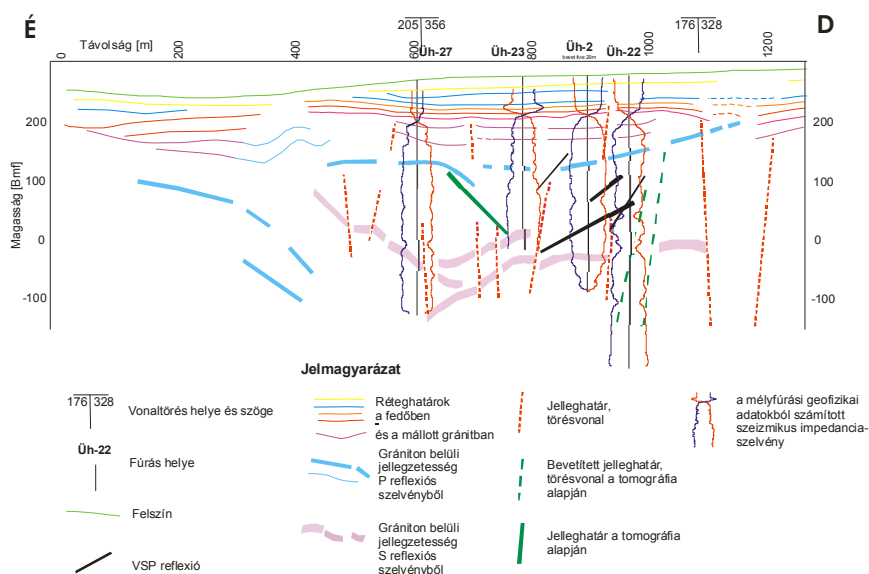 É
D
205 356
176 328
Távolság [m]
0
200
400
600
800
1000
1200
Üh-27
Üh-23
Üh-2
bevetítve: 29m
Üh-22
Magasság [Bmf]
200
100
0
-100
200
100
0
-100
Jelmagyarázat
176 328
Vonaltörés helye és szöge
Üh-22
Fúrás helye
Felszín
VSP reflexió
Réteghatárok
a fedőben
és a mállott gránitban
Grániton belüli
jellegzetesség
P reflexiós
szelvényből
Grániton belüli
jellegzetesség
S reflexiós
szelvényből
Jelleghatár,
törésvonal
Bevetített jelleghatár,
törésvonal a tomográfia
alapján
Jelleghatár a tomográfia
alapján
a mélyfúrási geofizikai
adatokból számított
szeizmikus impedancia-
szelvény